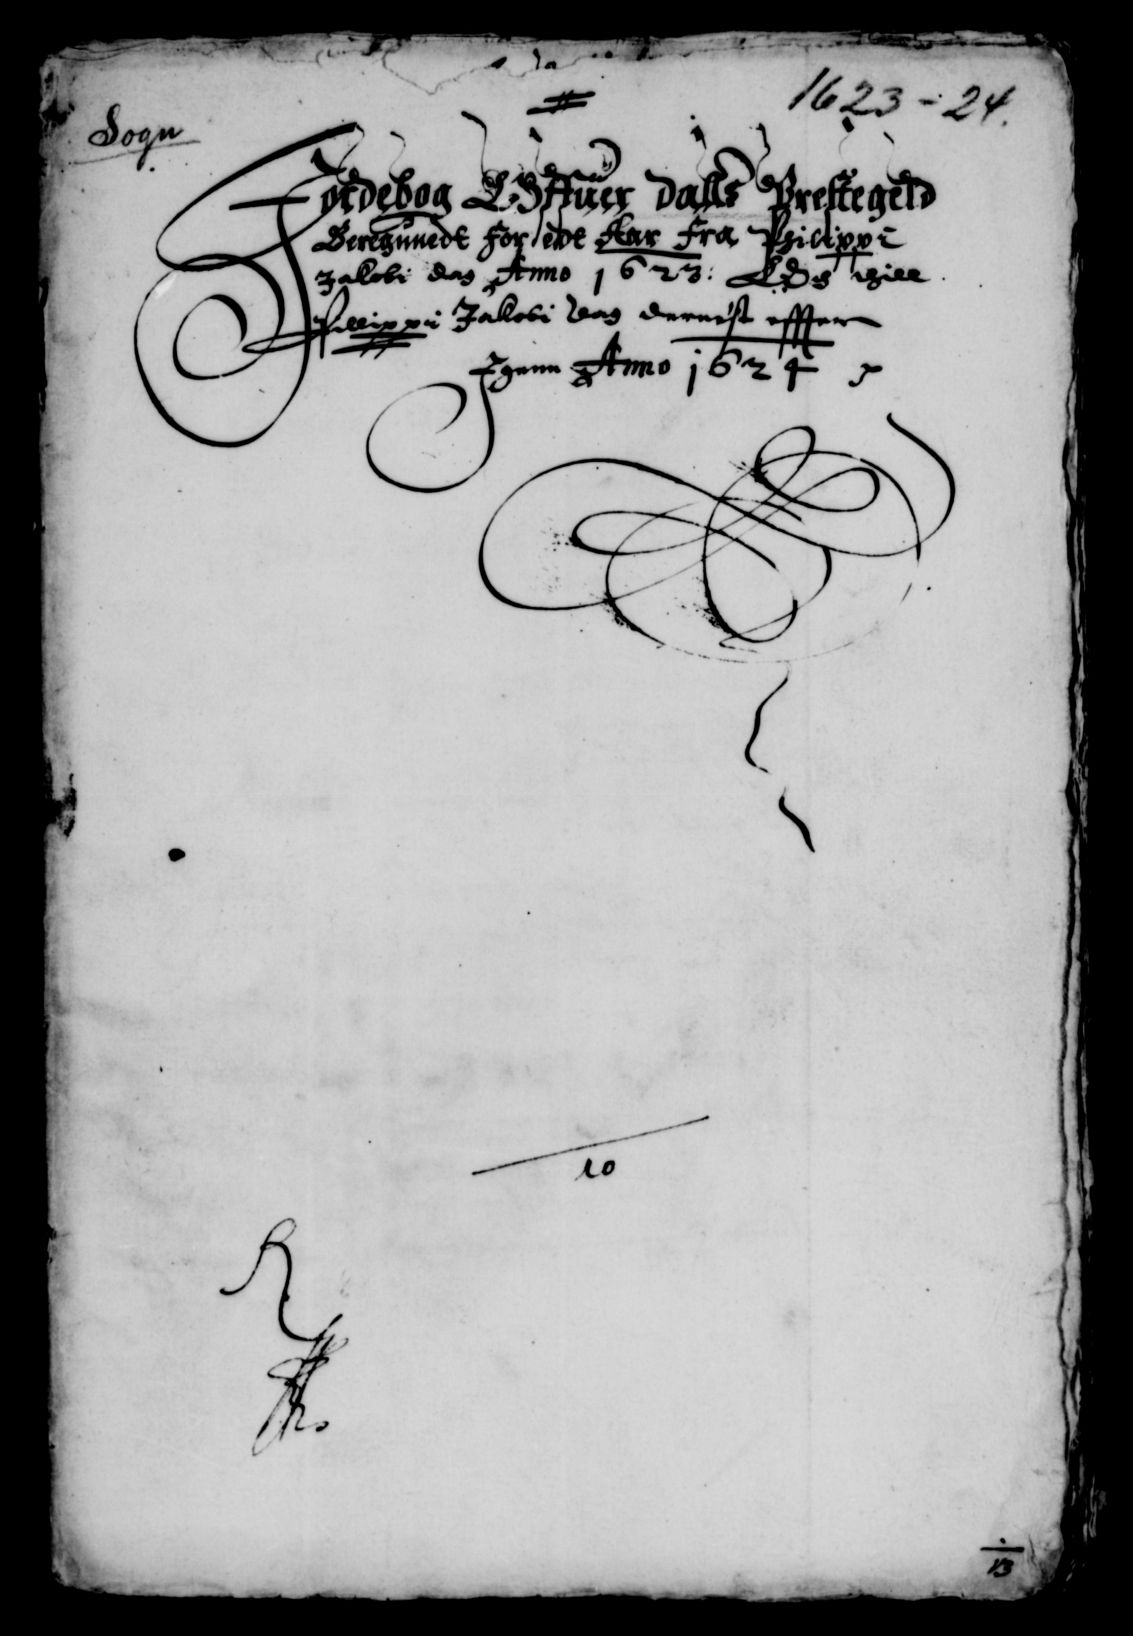 1623-24.
Sogn
Jordebog Offuer Dalls Prestegeld
Beregnnedt for idt Aar fra Philippi
Jakobi dag Anno 1623: Och thill
Phillippi Jakobi dag dernest effter
Igenn Anno 1624
10
13